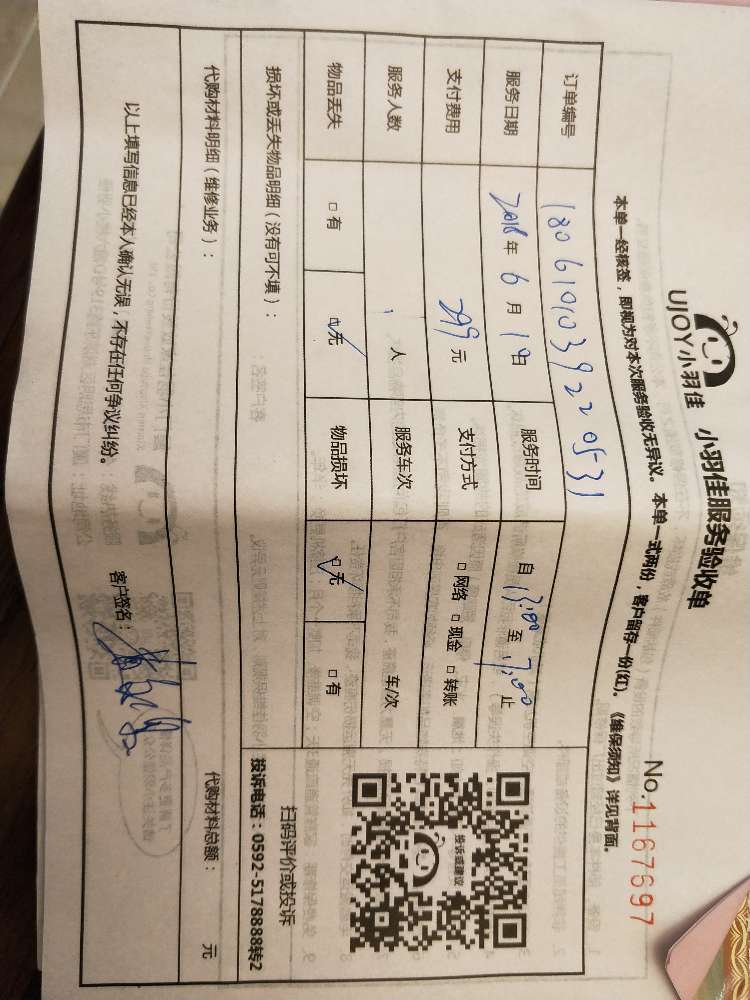 UJOY小羽佳 小羽佳服务验收单
No.1167697
本单一经核签，即视为对本次服务验收无异议。本单一式两份，客户留存一份(红)。《维保须知》详见背面。
订单编号 1806101039220531
服务日期 2018年6月10日 服务时间 自13:00至17:00止
支付费用 299元 支付方式 □网络 □现金 □转账
服务人数 1人 服务车次 车/次
物品丢失 □有 ☑无 物品损坏 ☑无 □有
损坏或丢失物品明细(没有可不填)：
投诉或建议
扫码评价或投诉
投诉电话：0592-5178888转2
代购材料明细(维修业务)：
代购材料总额： 元
以上填写信息已经本人确认无误，不存在任何争议纠纷。 客户签名：